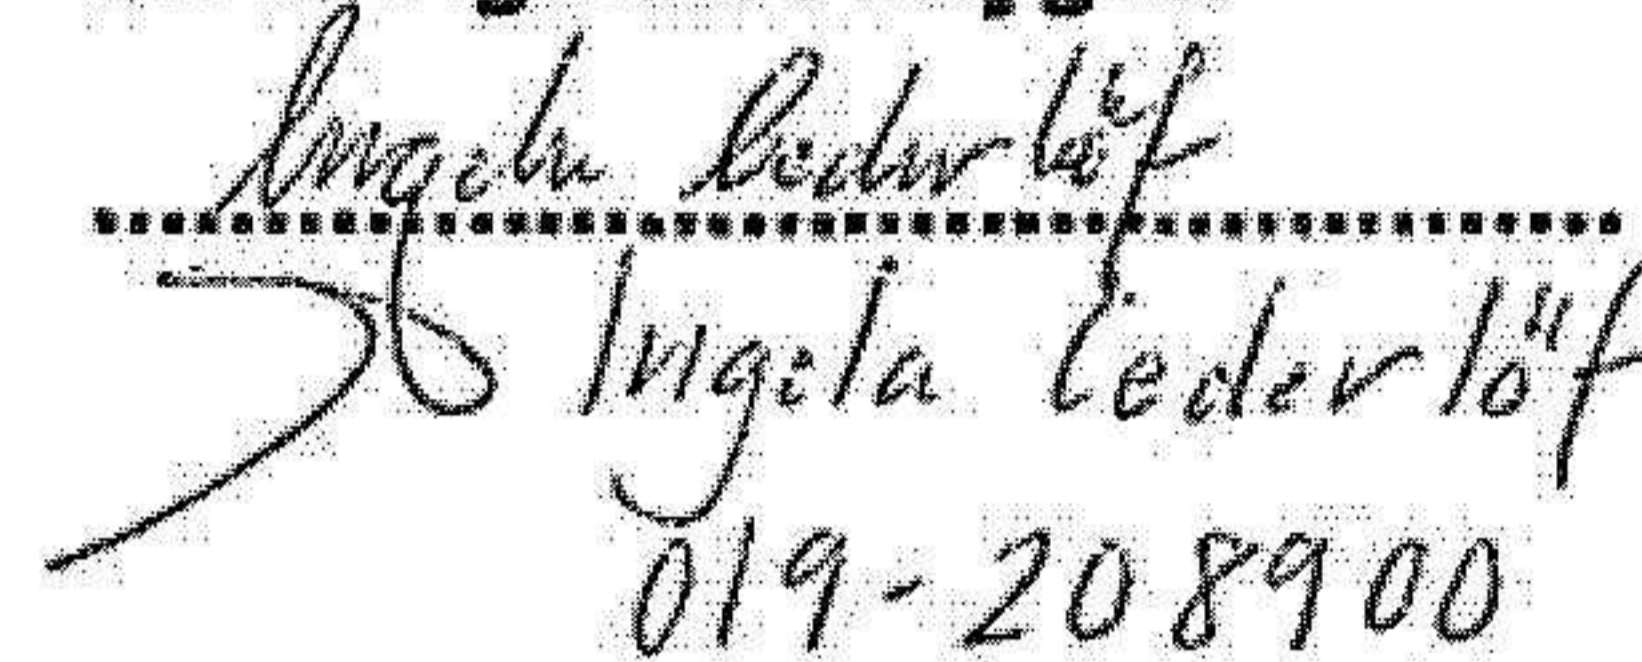 Ingela Cederlöf
Ingela Cederlöf
019-208900